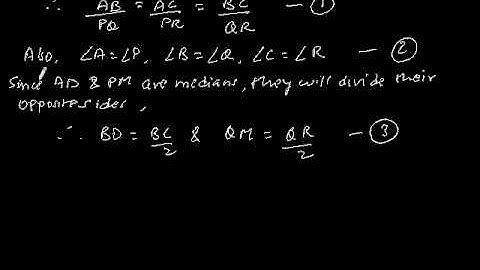 ∴ AB/PQ = AC/PR = BC/QR — ①
Also, ∠A = ∠P, ∠B = ∠Q, ∠C = ∠R — ②
Since AD & PM are medians, they will divide their
opposite sides,
∴ BD = BC/2 & QM = QR/2 — ③